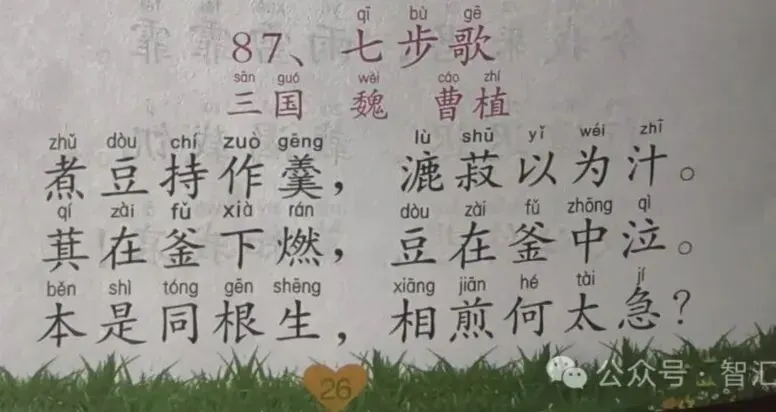 qī bù gē
87、七步歌
sān guó wèi cáo zhí
三国 魏 曹植
zhǔ dòu chí zuò gēng lù shū yǐ wéi zhī
煮豆持作羹，漉菽以为汁。
qí zài fǔ xià rán dòu zài fǔ zhōng qì
萁在釜下燃，豆在釜中泣。
běn shì tóng gēn shēng xiāng jiān hé tài jí
本是同根生，相煎何太急？
26
公众号·智汇